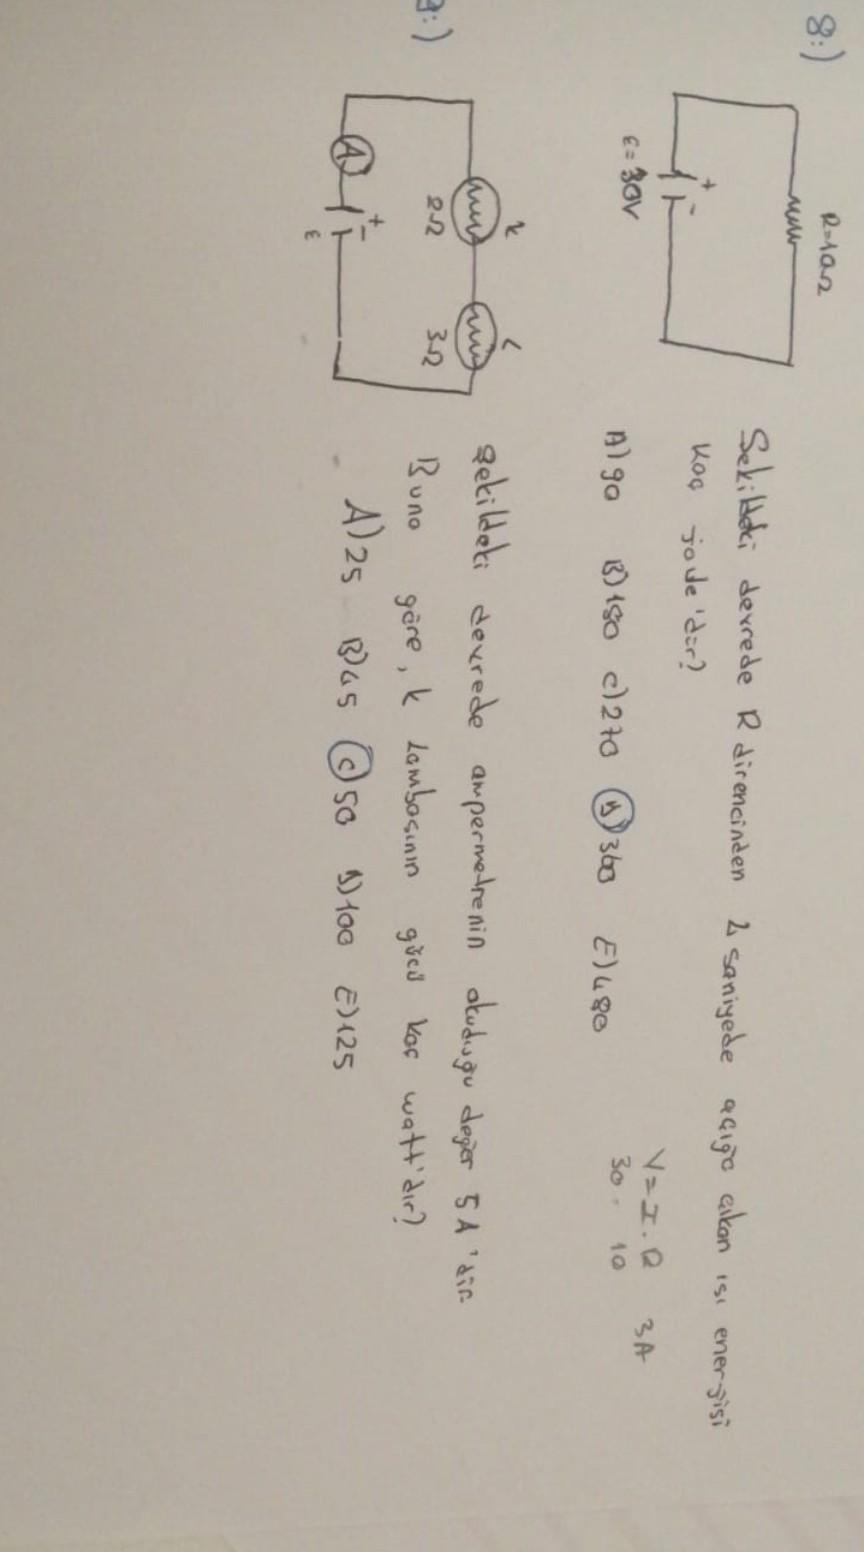 8:)
R=10Ω
+ -
ε=30V
Şekildeki devrede R direncinden 4 saniyede açığa çıkan ısı enerjisi
kaç joule'dür?
A)90 B)180 C)270 D)360 E)480
V=I.R 3A
30. 10
9:)
K L
2Ω 3Ω
A + -
ε
Şekildeki devrede ampermetrenin okuduğu değer 5A'dir.
Buna göre, K lambasının gücü kaç watt'dır?
A)25 B)45 C)50 D)100 E)125